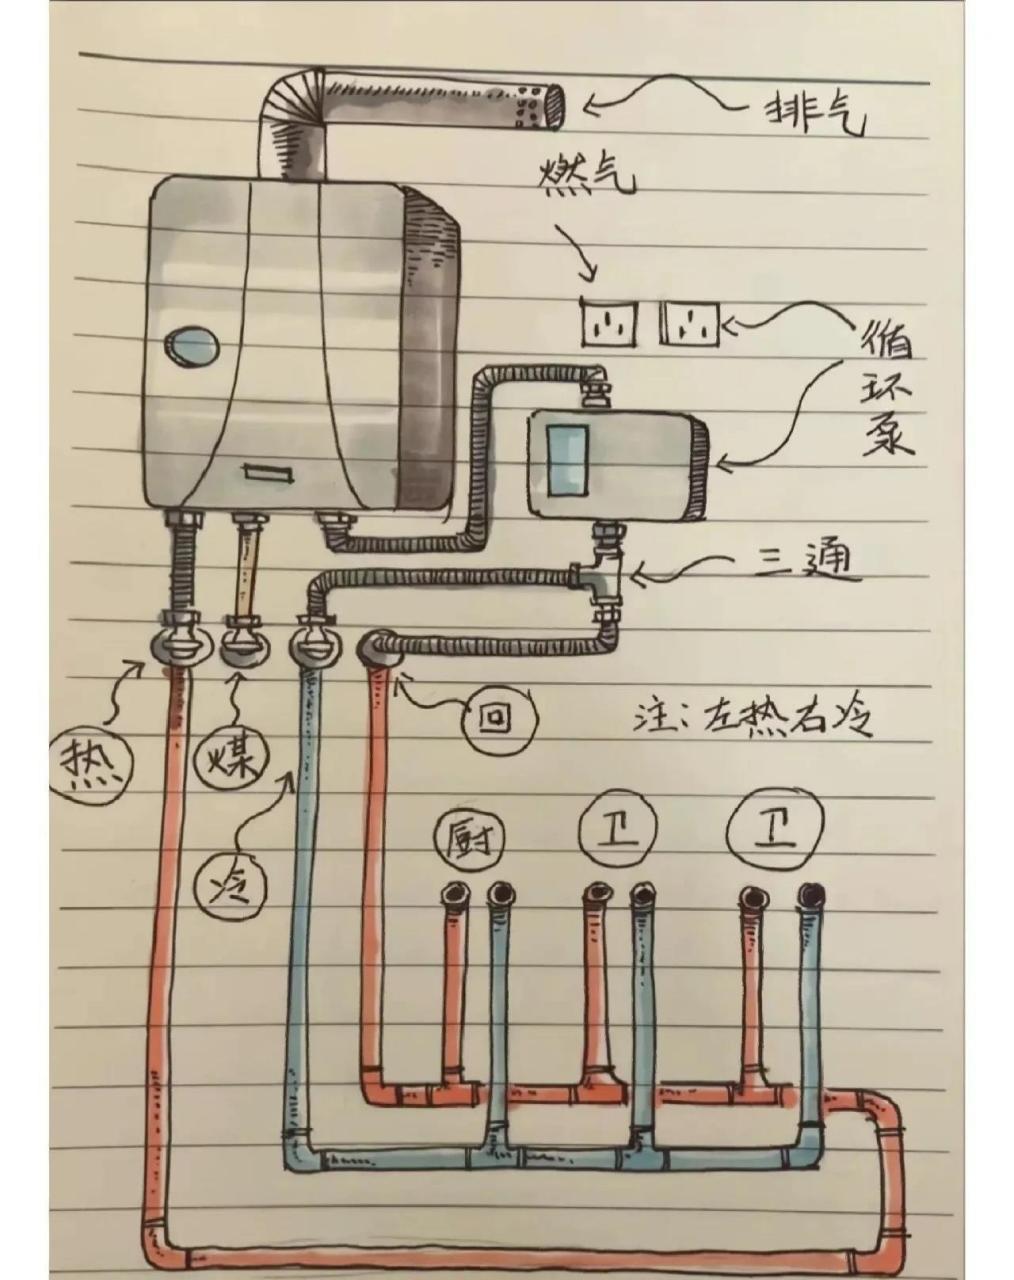 排气
燃气
循环泵
三通
回
注:左热右冷
热
煤
冷
厨
卫
卫